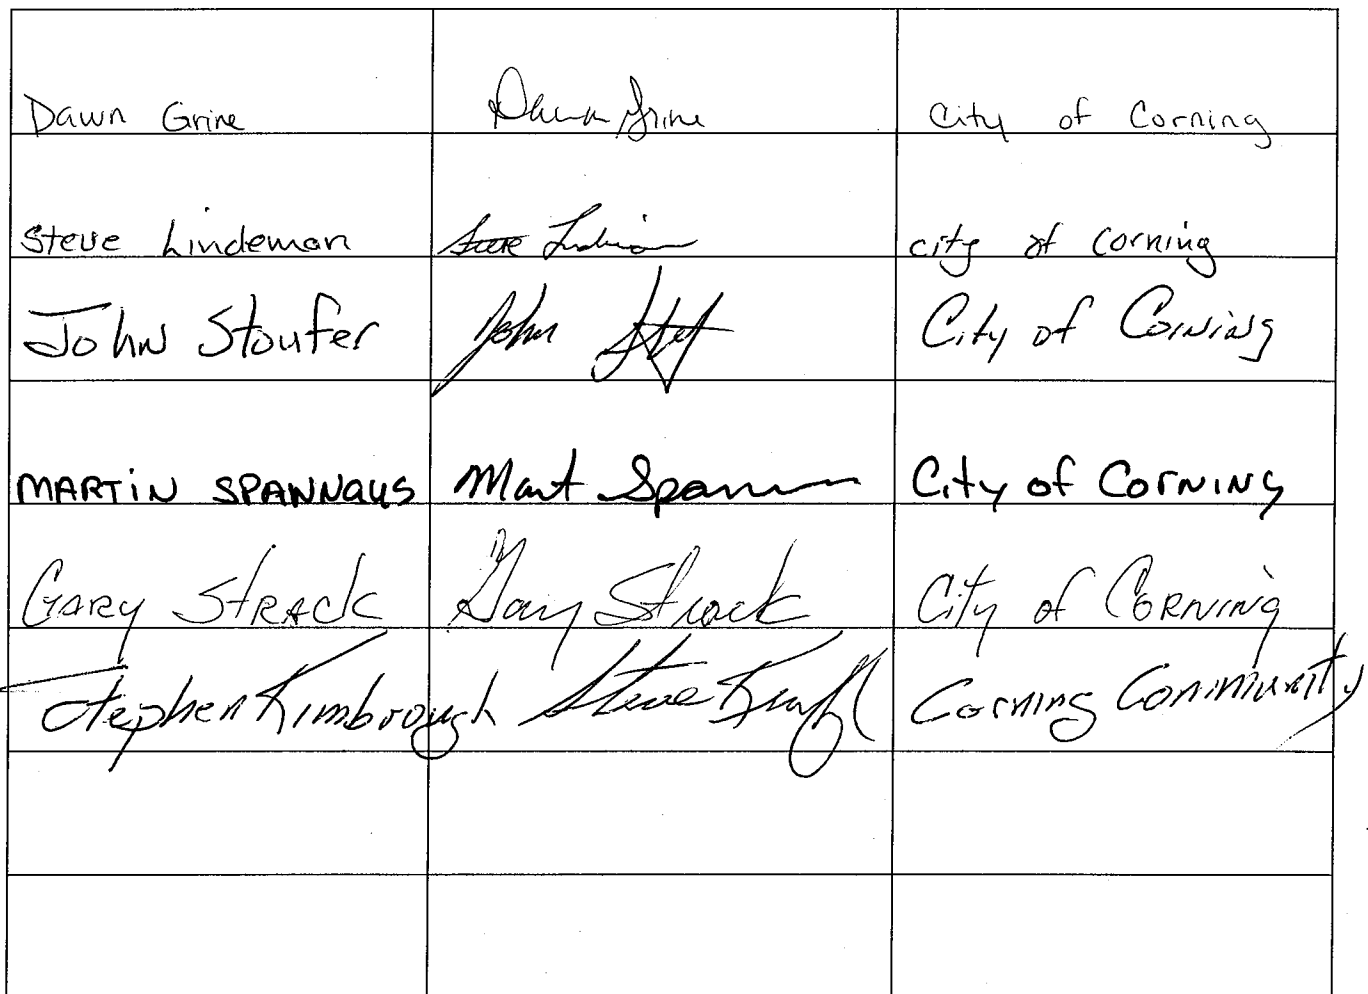 Dawn Grine Dawn Grine City of Corning
Steve Lindeman Steve city of corning
John Stoufer John City of Corning
MARTIN SPANNAUS Mart City of Corning
GARY STRACK Gary Strack City of CORNING
Stephen Kimbrough Steve Corning Community